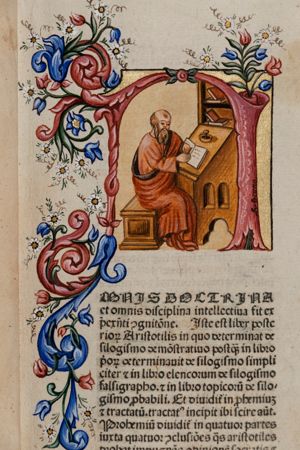 MNIS DOCTRINA
et omnis disciplina intellectiua fit ex
Iste est liber poste
rioꝝ Aristotilis in quo determinat de
silogismo demõstratiuo postq̃ in libro
determinauit de silogismo simpli
citer ⁊ in libro elencorum de silogismo
falsigrapho. ⁊ in libro topicorũ de silo
gismo ꝓbabili. Et diuidiť in ꝓhemiuʒ
⁊ tractatũ. tractať incipit ibi scire aũt.
Prohemiũ diuidiť in quatuor partes
iuxta quatuor ꝯclusiões q̃s aristotiles
probat